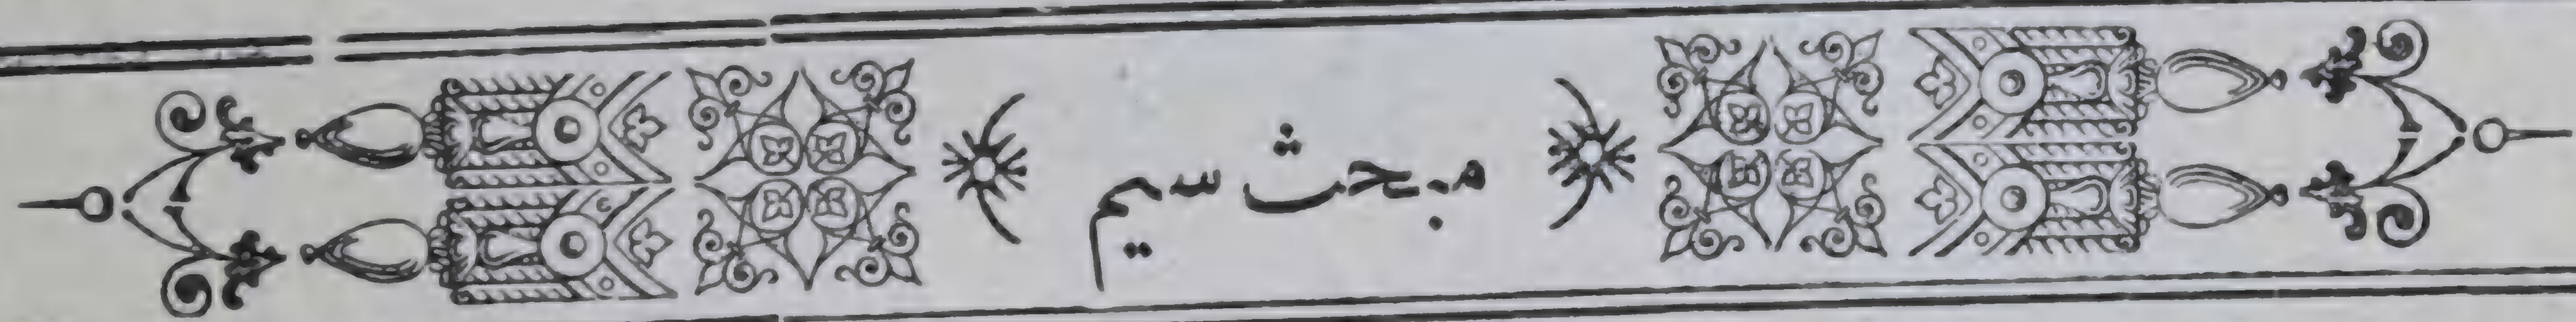 مبحث سیم